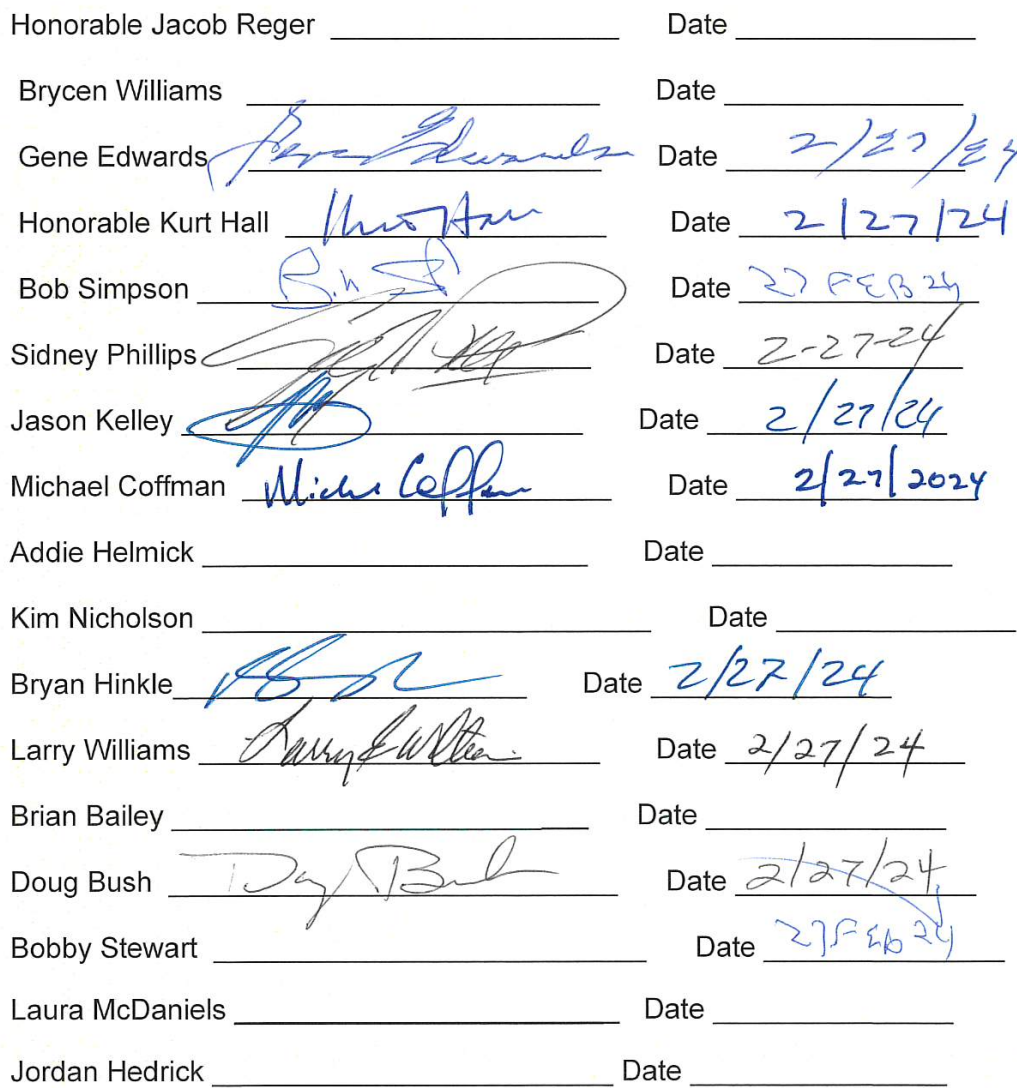 Honorable Jacob Reger Date
Brycen Williams Date
Gene Edwards Gene Edwards Date 2/27/24
Honorable Kurt Hall Kurt Hall Date 2/27/24
Bob Simpson Date 27 FEB 24
Sidney Phillips Date 2-27-24
Jason Kelley Date 2/27/24
Michael Coffman Date 2/27/2024
Addie Helmick Date
Kim Nicholson Date
Bryan Hinkle Date 2/27/24
Larry Williams Larry E Williams Date 2/27/24
Brian Bailey Date
Doug Bush Doug Bush Date 2/27/24
Bobby Stewart Date 27 FEB 24
Laura McDaniels Date
Jordan Hedrick Date